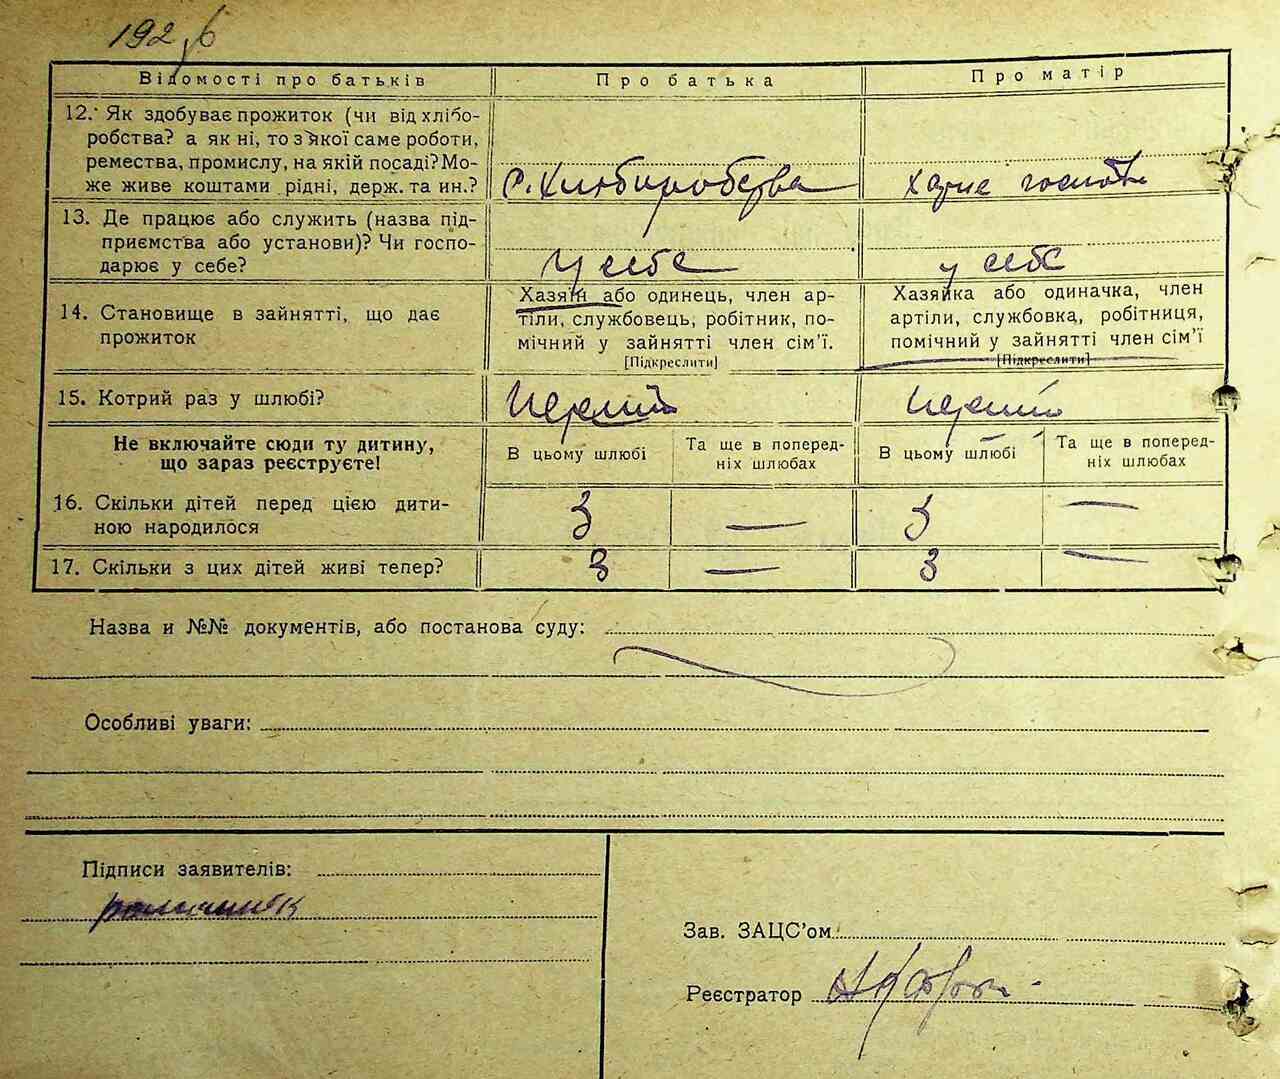 192 6
Відомості про батьків
Про батька
Про матір
12. Як здобуває прожиток (чи від хлібо-
робства? а як ні, то з якої саме роботи,
ремества, промислу, на якій посаді? Мо-
же живе коштами рідні, держ. та ин.?
13. Де працює або служить (назва під-
приємства або установи)? Чи госпо-
дарює у себе?
у себе
у себе
14. Становище в зайнятті, що дає
прожиток
Хазяїн або одинець, член ар-
тіли, службовець, робітник, по-
мічний у зайнятті член сім'ї.
[Підкреслити]
Хазяйка або одиначка, член
артіли, службовка, робітниця,
помічний у зайнятті член сім'ї
[Підкреслити]
15. Котрий раз у шлюбі?
Не включайте сюди ту дитину,
що зараз реєструєте!
В цьому шлюбі
Та ще в поперед-
ніх шлюбах
В цьому шлюбі
Та ще в поперед-
ніх шлюбах
16. Скільки дітей перед цією дити-
ною народилося
3 — 3 —
17. Скільки з цих дітей живі тепер?
3 — 3 —
Назва и №№ документів, або постанова суду:
Особливі уваги:
Підписи заявителів:
Зав. ЗАЦС'ом
Реєстратор